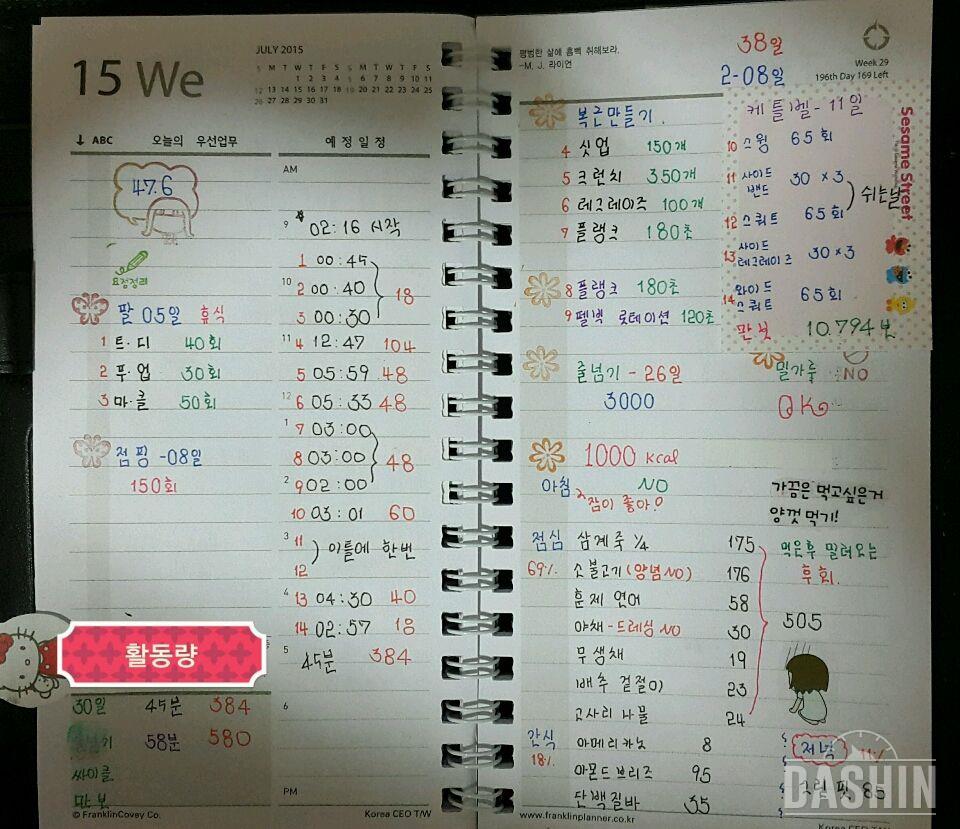 JULY 2015
15 We
S M T W T F S S M T W T F S
1 2 3 4 5 6 7 8 9 10 11
12 13 14 15 16 17 18 19 20 21 22 23 24 25
26 27 28 29 30 31
↓ ABC 오늘의 우선업무
47.6
요점정리
팔 05일 휴식
1 트·디 40회
2 푸·업 30회
3 마·클 50회
점핑 -08일
150회
활동량
30일 45분 384
58분 580
싸이클
만보
© FranklinCovey Co.
예정일정
AM
9 02:16 시작
1 00:45
10 2 00:40 18
3 00:30
11 4 12:47 104
5 05:59 48
12 6 05:33 48
1 7 03:00
8 03:00 48
2 9 02:00
10 03:01 60
3 11
12 이틀에 한번
4 13 04:30 40
14 02:57 18
5 45분 384
6
PM
Korea CEO T/W
평범한 삶에 흠뻑 취해보라.
-M. J. 라이언
38일
2-08일
Week 29
196th Day 169 Left
복근만들기.
4 싯업 150개
5 크런치 350개
6 레그레이즈 100개
7 플랭크 180초
8 플랭크 180초
9 펠빅 로테이션 120초
케틀벨 - 11일
10 스윙 65회
11 사이드 밴드 30 ×3
12 스쿼트 65회
쉬는날
13 사이드 레그레이즈 30×3
14 와이드 스쿼트 65회
만보 10.794보
Sesame Street
줄넘기 - 26일
3000
밀가루 NO
OK
1000 kcal
아침 NO
잠이 좋아!
가끔은 먹고싶은거
양껏 먹기!
먹은후 밀려오는
후회.
점심 삼계죽 ¼ 175
69% 소불고기 (양념NO) 176
훈제 연어 58
야채 - 드레싱 NO 30
무생채 19
배추 겉절이 23
고사리 나물 24
505
간식 아메리카노 8
18% 아몬드브리즈 95
단백질바 35
저녁
85
DASHIN
www.franklinplanner.co.kr
Korea CEO T/W